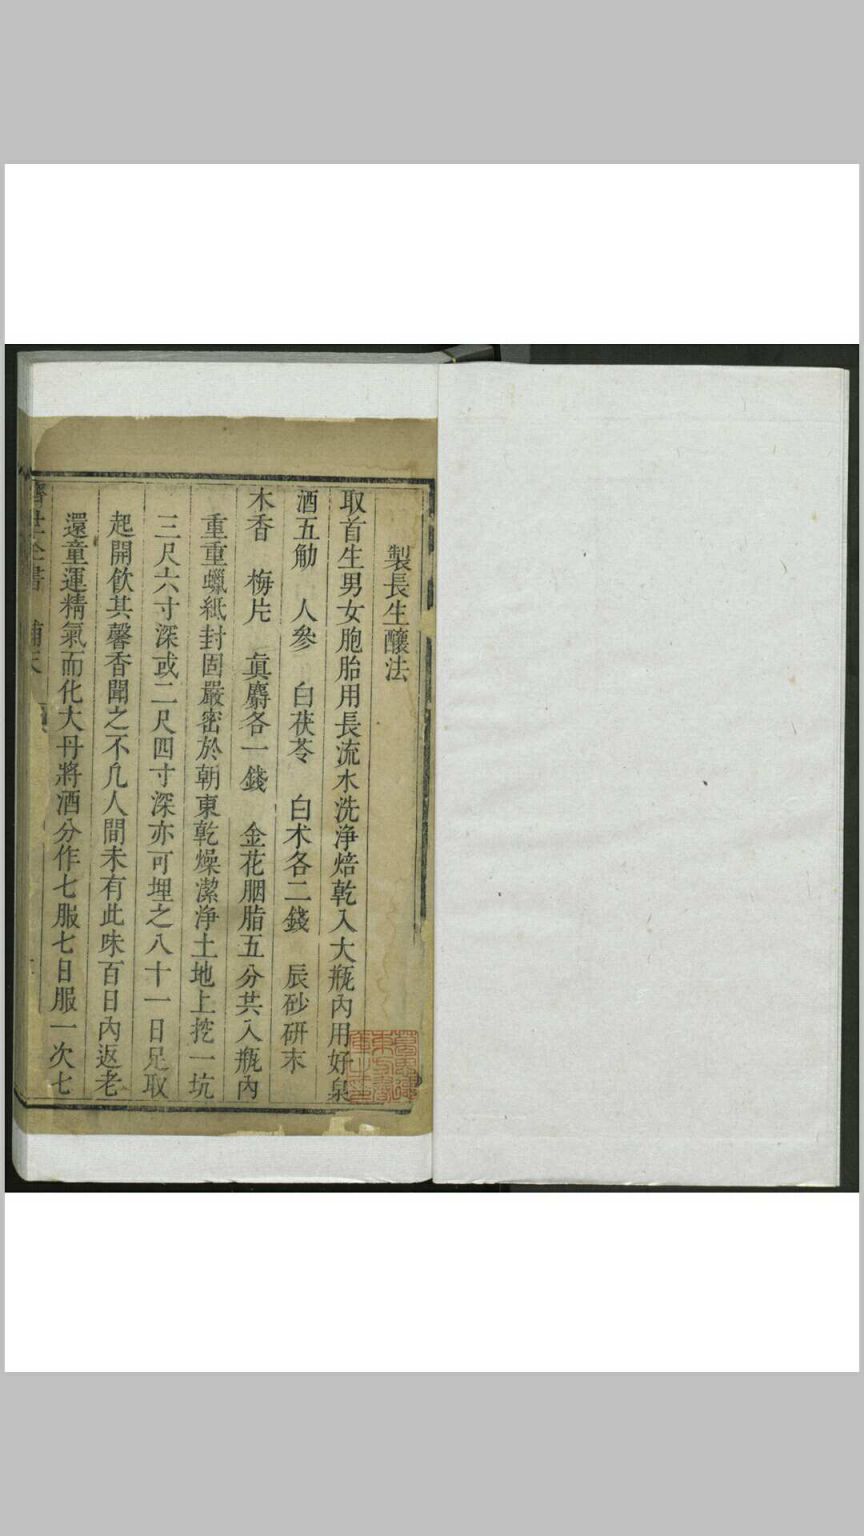 製長生釀法
取首生男女胞胎用長流水洗淨焙乾入大瓶內用好泉
酒五觔　人參　白茯苓　白术各二錢　辰砂研末
木香　梅片　眞麝各一錢　金花胭脂五分共入瓶內
重重蠟紙封固嚴密於朝東乾燥潔淨土地上挖一坑
三尺六寸深或二尺四寸深亦可埋之八十一日足取
起開飲其馨香聞之不凢人間未有此味百日內返老
還童運精氣而化大丹將酒分作七服七日服一次七
濟世全書